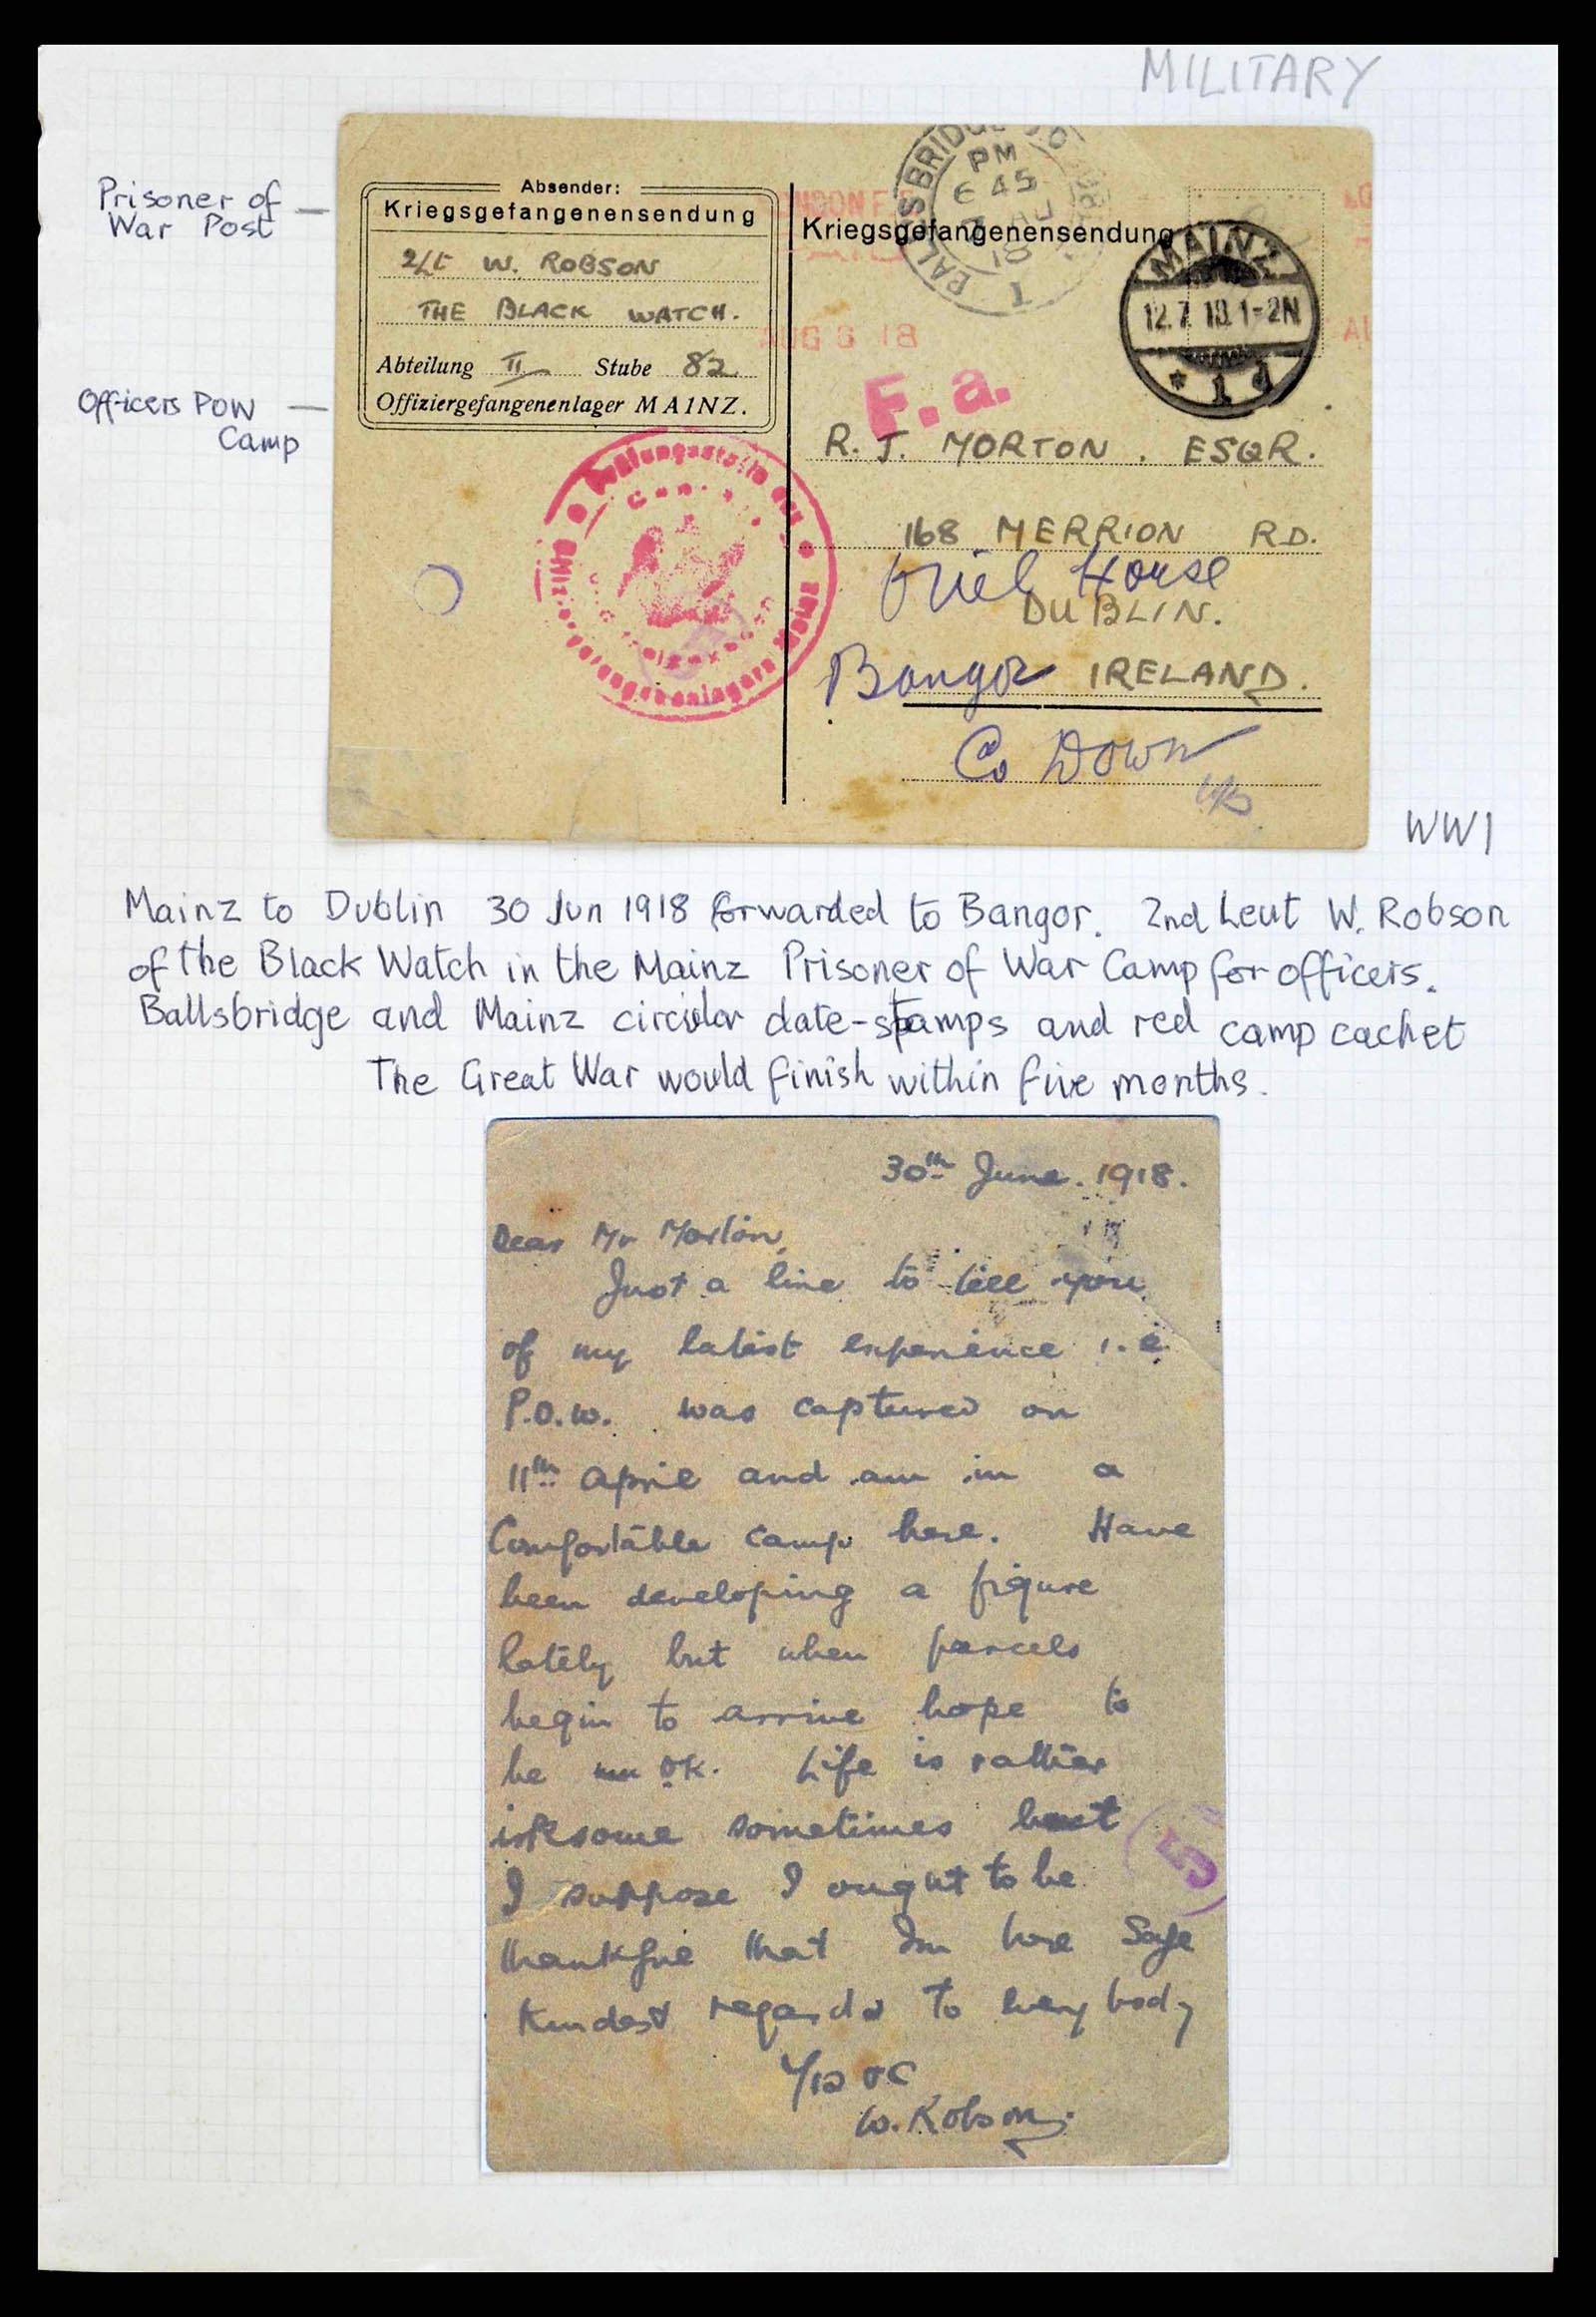 MILITARY
Prisoner of
War Post
Officers POW
Camp
Absender:
Kriegsgefangenensendung
2/Lt W. ROBSON
THE BLACK WATCH.
Abteilung II Stube 82
Offiziergefangenenlager MAINZ.
Kriegsgefangenensendung
PM
6 45
AU
18
AUG 6 18
MAINZ
12.7.18.1-2N
* 1 d
F. a.
R. J. MORTON. ESQR.
168 MERRION RD.
Oriel House
DUBLIN.
Bangor IRELAND.
Co Down
WW1
Mainz to Dublin 30 Jun 1918 forwarded to Bangor. 2nd Leut W. Robson
of the Black Watch in the Mainz Prisoner of War Camp for officers.
Ballsbridge and Mainz circular date-stamps and red camp cachet
The Great War would finish within five months.
30th June. 1918.
Dear Mr Morton,
Just a line to tell you
of my latest experience i.e
P.O.W. was captured on
11th April and am in a
Comfortable camp here. Have
been developing a figure
lately but when parcels
begin to arrive hope to
be OK. Life is rather
irksome sometimes but
I suppose I ought to be
thankful that Im here Safe
Kindest regards to everybody
W. Robson.
5